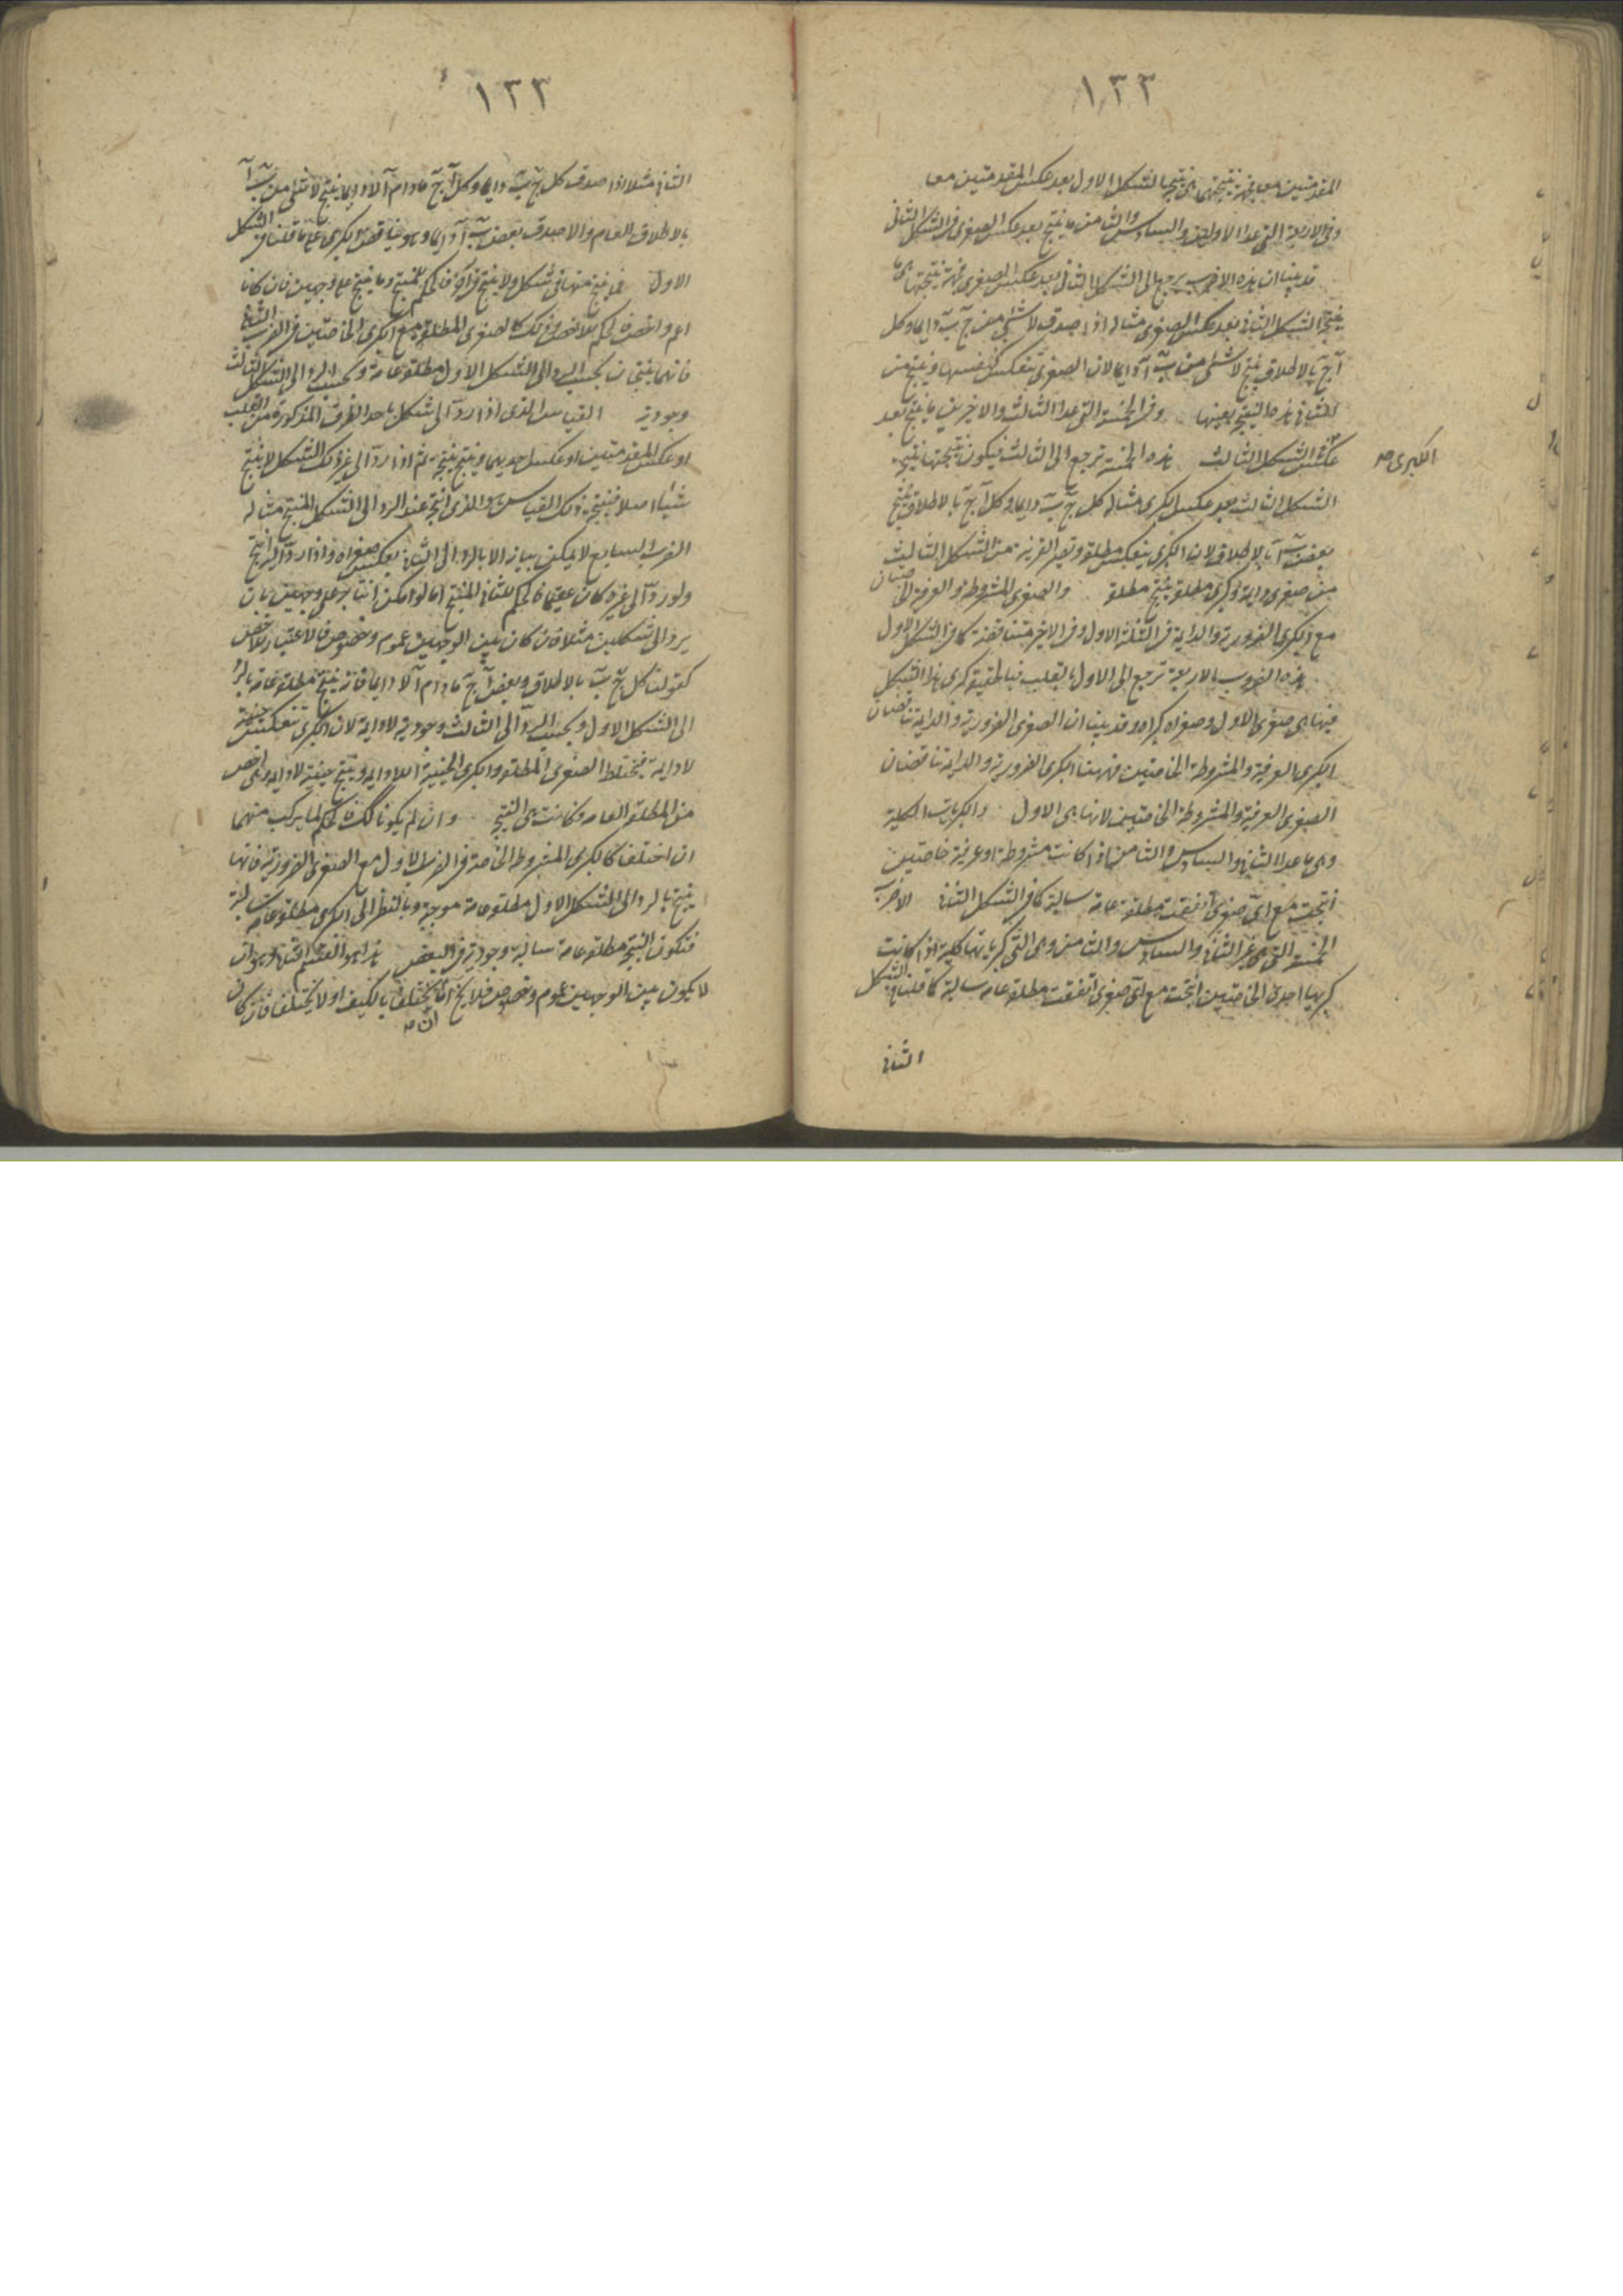 ١٣٣
المقدمتين معا فجهة نتيجتها هى نتيجة الشكل الاول بعد عكس المقدمتين معا
وفى الاربعة التى عدا الاولين والسادس والثامن ما ينتج بعد عكس الصغرى فى الشكل الثانى
قد بينا ان هذه الاضرب يرجع الى الشكل الثانى بعد عكس الصغرى فجهة نتيجتها هى ما
ينتجه الشكل الثانى بعد عكس الصغرى مثاله اذا صدق لا شئ من ج ب دايما وكل
آ ج بالاطلاق ينتج لا شئ من ب آ دايما لان الصغرى تنعكس كنفسها وينتج من
الثانى هذه النتيجة بعينها وفى الخمسة التى عدا الثالث والاخيرين ما ينتج بعد
عكس الشكل الثالث هذه الخمسة ترجع الى الثالث فيكون نتيجتها نتيجة
الكبرى صح
الشكل الثالث بعد عكس الكبرى مثاله كل ج ب دايما وكل آ ج بالاطلاق ينتج
بعض ب آ بالاطلاق لان الكبرى ينعكس مطلقة وتصير القرينة من الشكل الثالث
من صغرى دايمة وكبرى مطلقة ينتج مطلقة والصغرى المشروطة والعرفية الخاصتان
مع الكبرى الضرورية والدايمة فى الثلثة الاول وفى الاخير متناقضة كما فى الشكل الاول
هذه الضروب الاربعة ترجع الى الاول بالقلب فبالحقيقة كبرى هذا الشكل
فيها هى صغرى الاول وصغراه كبراه وقد بينا ان الصغرى الضرورية والدايمة تناقضان
الكبرى العرفية والمشروطة الخاصتين فههنا الكبرى الضرورية والدايمة تناقضان
الصغرى العرفية والمشروطة الخاصتين لانها هى الاول والكبريات الكلية
وهى ما عدا الثانى والسادس والثامن اذا كانت مشروطة او عرفية خاصتين
انتجت مع اى صغرى اتفقت مطلقة عامة سالبة كما فى الشكل الثانى الاضرب
الخمسة التى هى غير الثانى والسادس والثامن وهى التى كبرياتها كلية اذا كانت
كبريها احدى الخاصتين انتجت مع اى صغرى اتفقت مطلقة عامه سالبة كما قلنا فى الشكل
الثانى
١٣٣
الثانى مثلا اذا صدق كل ج ب دايما وكل آ ج ما دام آ لا دايما ينتج لا شئ من ب آ
بالاطلاق العام والا صدق بعض ب آ دايما وهو يناقض الكبرى على ما قلنا فى الشكل
الاول فما ينتج منها فى شكل ولا ينتج فى اخر فالحكم للمنتج وما ينتج على وجهين فان كانا
اعم واخص فالحكم للاخص وذلك كالصغرى المطلقة مع الكبرى الخاصتين فى الضرب الثانى
فانهما ينتجان بحسب الرد الى الشكل الاول مطلقة عامة وبحسب الرد الى الشكل الثالث
وجودية القياس الذى اذا رد الى شكل باحد الطرق المذكورة من القلب
او عكس المقدمتين او عكس احديهما وينتج نتيجة ثم اذا رد الى غير ذلك الشكل لا ينتج
شيئا اصلا فنتيجة ذلك القياس هو الذى انتج عند الرد الى الشكل المنتج مثاله
الضرب السابع لا يمكن بيانه الا بالرد الى الثانى بعكس صغراه واذا رد اليه انتج
ولو رد الى غيره كان عقيما فالحكم للثانى المنتج اما لو امكن انتاجه على وجهين بان
يرد الى شكلين مثلا فان كان بين الوجهين عموم وخصوص فالاعتبار للاخص
كقولنا كل ج ب بالاطلاق وبعض آ ج ما دام آ لا دايما فانه ينتج مطلقة عامة بالرد
الى الشكل الاول وبحسب الرد الى الثالث وجودية لا دايمة لان الكبرى تنعكس حينية
لا دايمة فيختلط الصغرى المطلقة والكبرى الحينية اللا دايمة وينتج حينية لا دايمة وهى اخص
من المطلقة العامه وكانت هى النتيجة وان لم يكونا كذلك فالحكم لما يركب منهما
ان اختلفا كالكبرى المشروطة الخاصة فى الضرب الاول مع الصغرى الضرورية فانها
ينتج بالرد الى الشكل الاول مطلقة عامة موجبة وبالنظر الى الكبرى مطلقة عامه سالبة
فتكون النتيجة مطلقة عامه سالبة وجودية فى البعض هذا هو القسم الثالث وهو ان
لا يكون بين الوجهين عموم وخصوص فلا يخ اما ان يختلفا بالكيف او لا يختلفا فان كان
ان صح